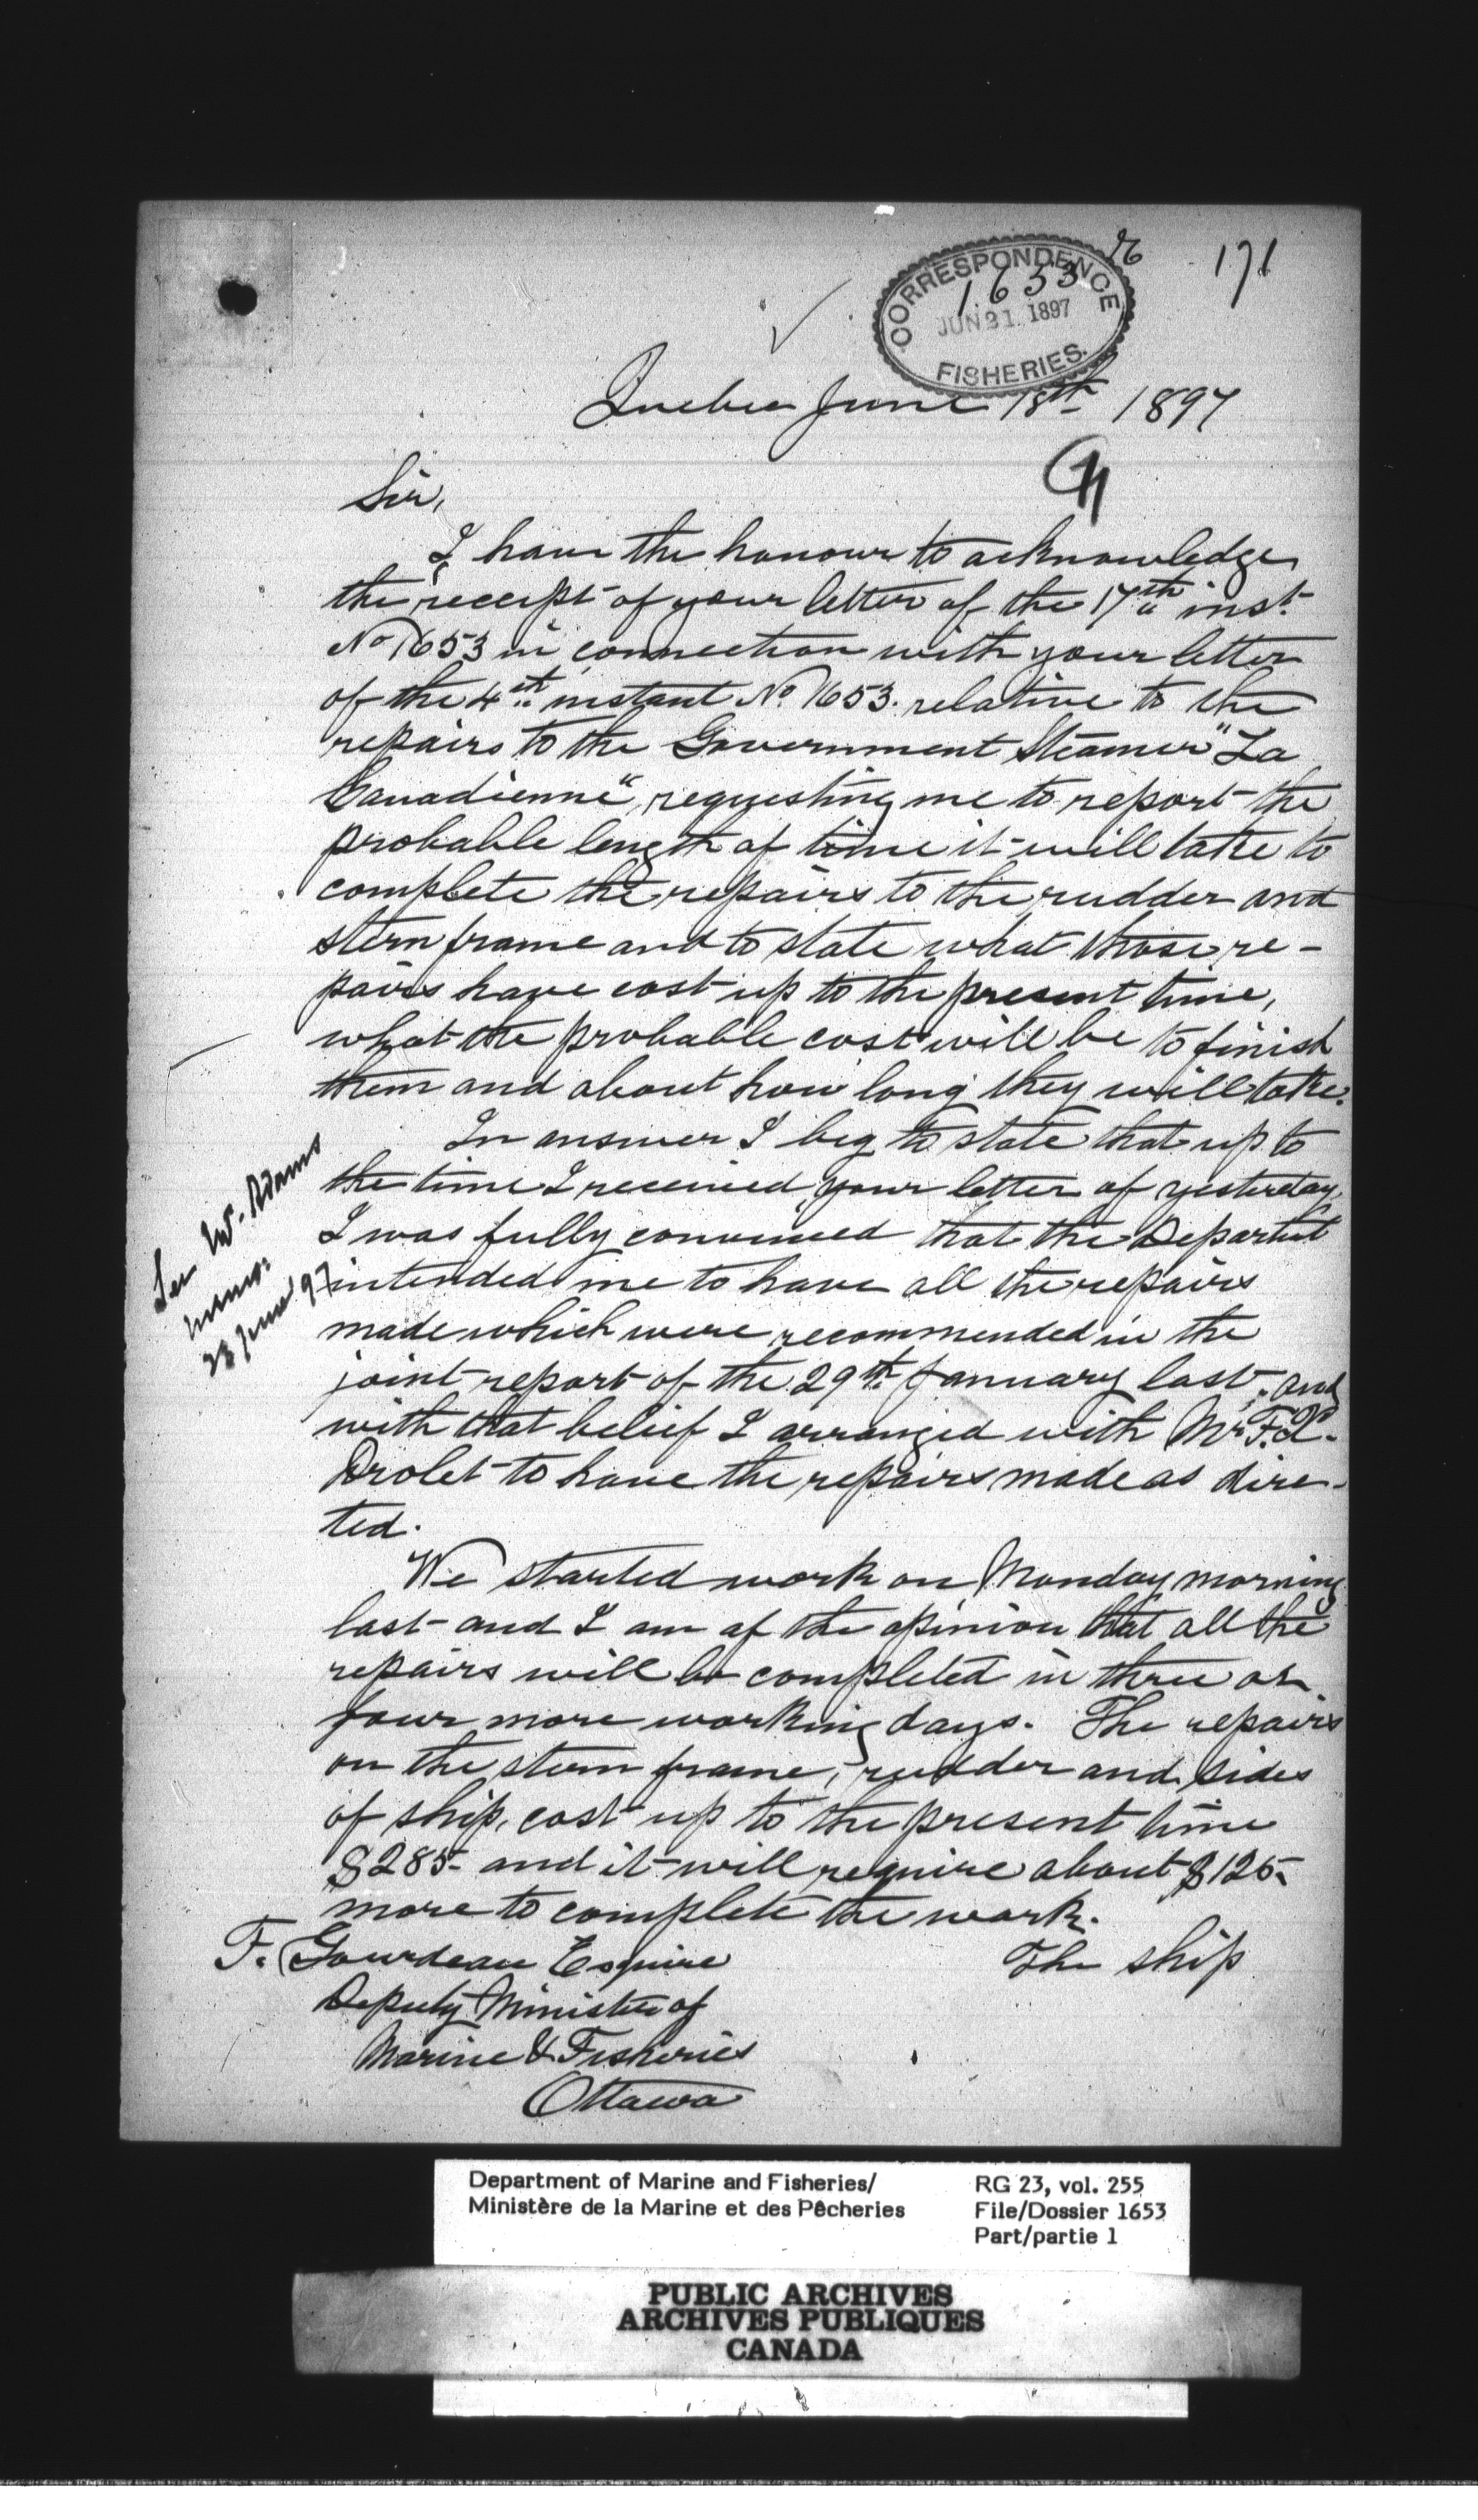 171
26
CORRESPONDENCE
1653
JUN 21 1897
FISHERIES.
Quebec June 18th 1897
Sir,
I have the honour to acknowledge
the receipt of your letter of the 17th inst.
No 1653 in connection with your letter
of the 4th instant No. 1653. relative to the
repairs to the Government Steamer "La
Canadienne", requesting me to report the
probable length of time it will take to
complete the repairs to the rudder and
stern frame and to state what those re-
pairs have cost up to the present time,
what the probable cost will be to finish
them and about how long they will take.
In answer I beg to state that up to
the time I received your letter of yesterday,
I was fully convinced that the Departmt
intended me to have all the repairs
made which were recommended in the
joint report of the 29th January last, and
with that belief I arranged with Mr. F.X.
Drolet to have the repairs made as direc-
ted.
We started work on Monday morning
last and I am of the opinion that all the
repairs will be completed in three or
four more working days. The repairs
on the stern frame, rudder and sides
of ship, cost up to the present time
$285- and it will require about $125-
more to complete the work.
The ship
F. Gourdeau Esquire
Deputy Minister of
Marine & Fisheries
Ottawa
W. Adams
23 June 97
Department of Marine and Fisheries/
Ministère de la Marine et des Pêcheries
RG 23, vol. 255
File/Dossier 1653
Part/partie 1
PUBLIC ARCHIVES
ARCHIVES PUBLIQUES
CANADA